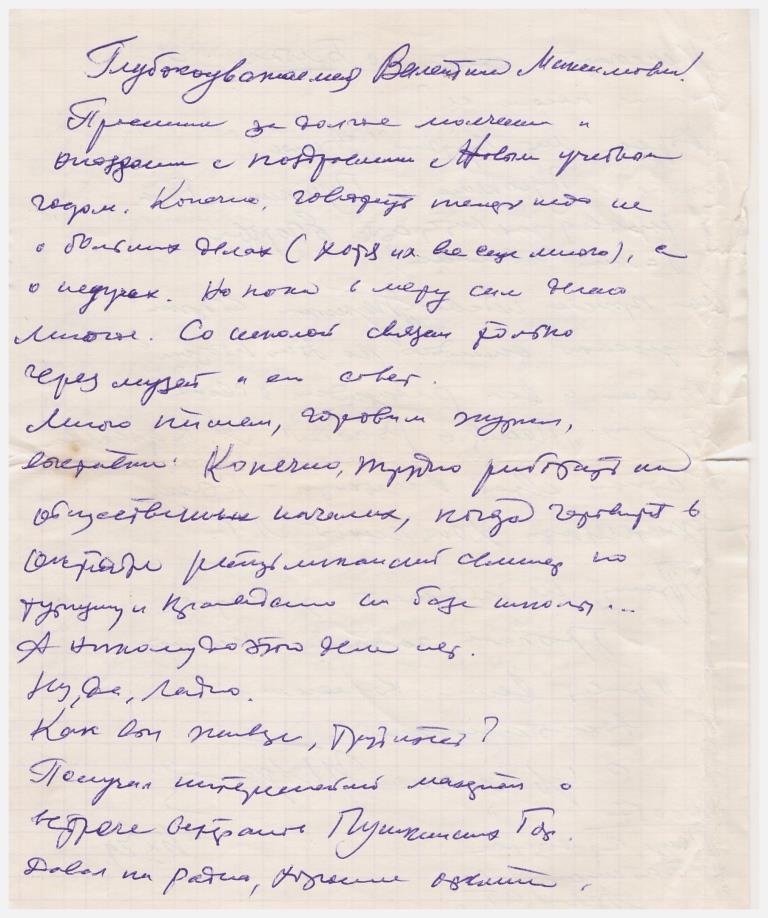 Глубокоуважаемая Валентина Максимовна!
Простите за долгое молчание и
опоздание с поздравлением с Новым учебным
годом. Конечно, говорить надо не
о больших делах (хотя их все еще много), а
о недугах. Но пока в меру сил делаю
многое. Со школой связан только
через музей и его совет.
Много пишем, готовим журнал,
выставки. Конечно, трудно работать на
общественных началах, когда готовит в
октябре республиканский семинар по
туризму и краеведению на базе школы...
А никому до этого дела нет.
Ну, да, ладно.
Как Вы живете, трудитесь?
Получил интереснейший материал о
встрече ветеранов Пушкинских Гор.
Давал на радио, хорошие отклики.